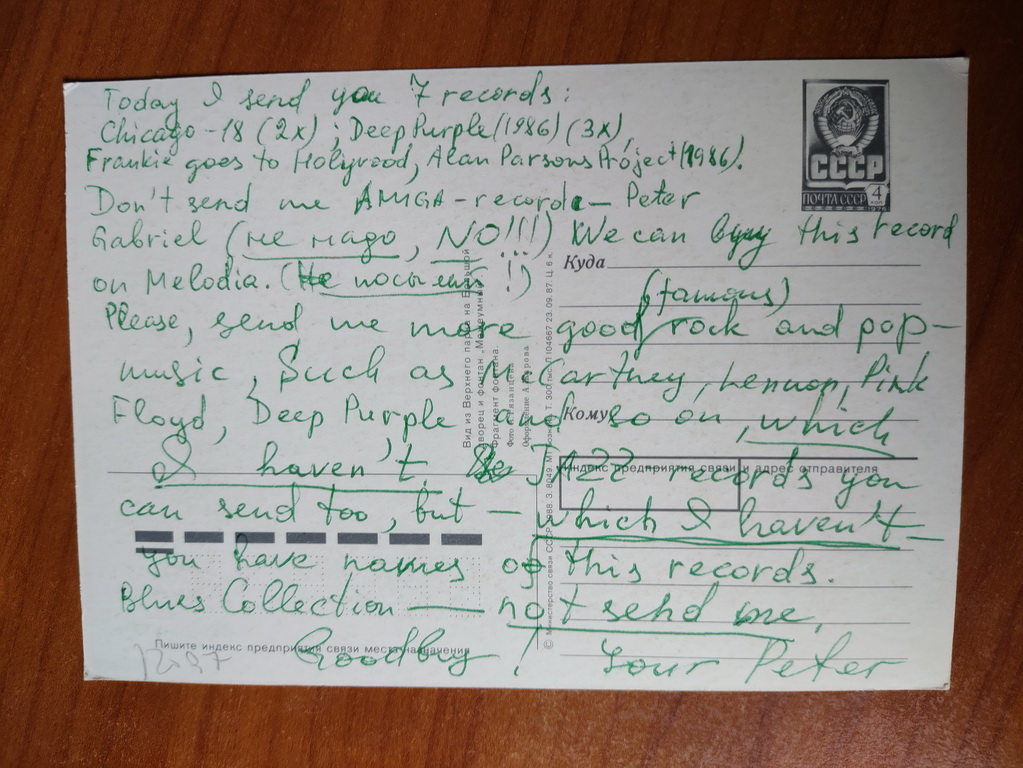 Today I send you 7 records:
Chicago - 18 (2x); Deep Purple (1986) (3x),
Frankie goes to Holywood, Alan Parsons Project (1986).
Don't send me AMIGA - records - Peter
Gabriel (не надо, NO!!!) We can buy this record
on Melodia. (Не посылай !)
(famous)
Please, send me more good rock and pop-
music, Such as McCartney, Lennon, Pink
Floyd, Deep Purple and so on, which
I haven't. JAZZ records you
can send too, but - which I haven't -
you have names of this records.
Blues Collection — not send me.
Goodby! Your Peter
СССР
ПОЧТА СССР
4
Куда
Кому
Индекс предприятия связи и адрес отправителя
Пишите индекс предприятия связи места назначения
Вид из Верхнего парка на Большой
дворец и фонтан
Фрагмент фонтана.
© Министерство связи СССР, 1988.